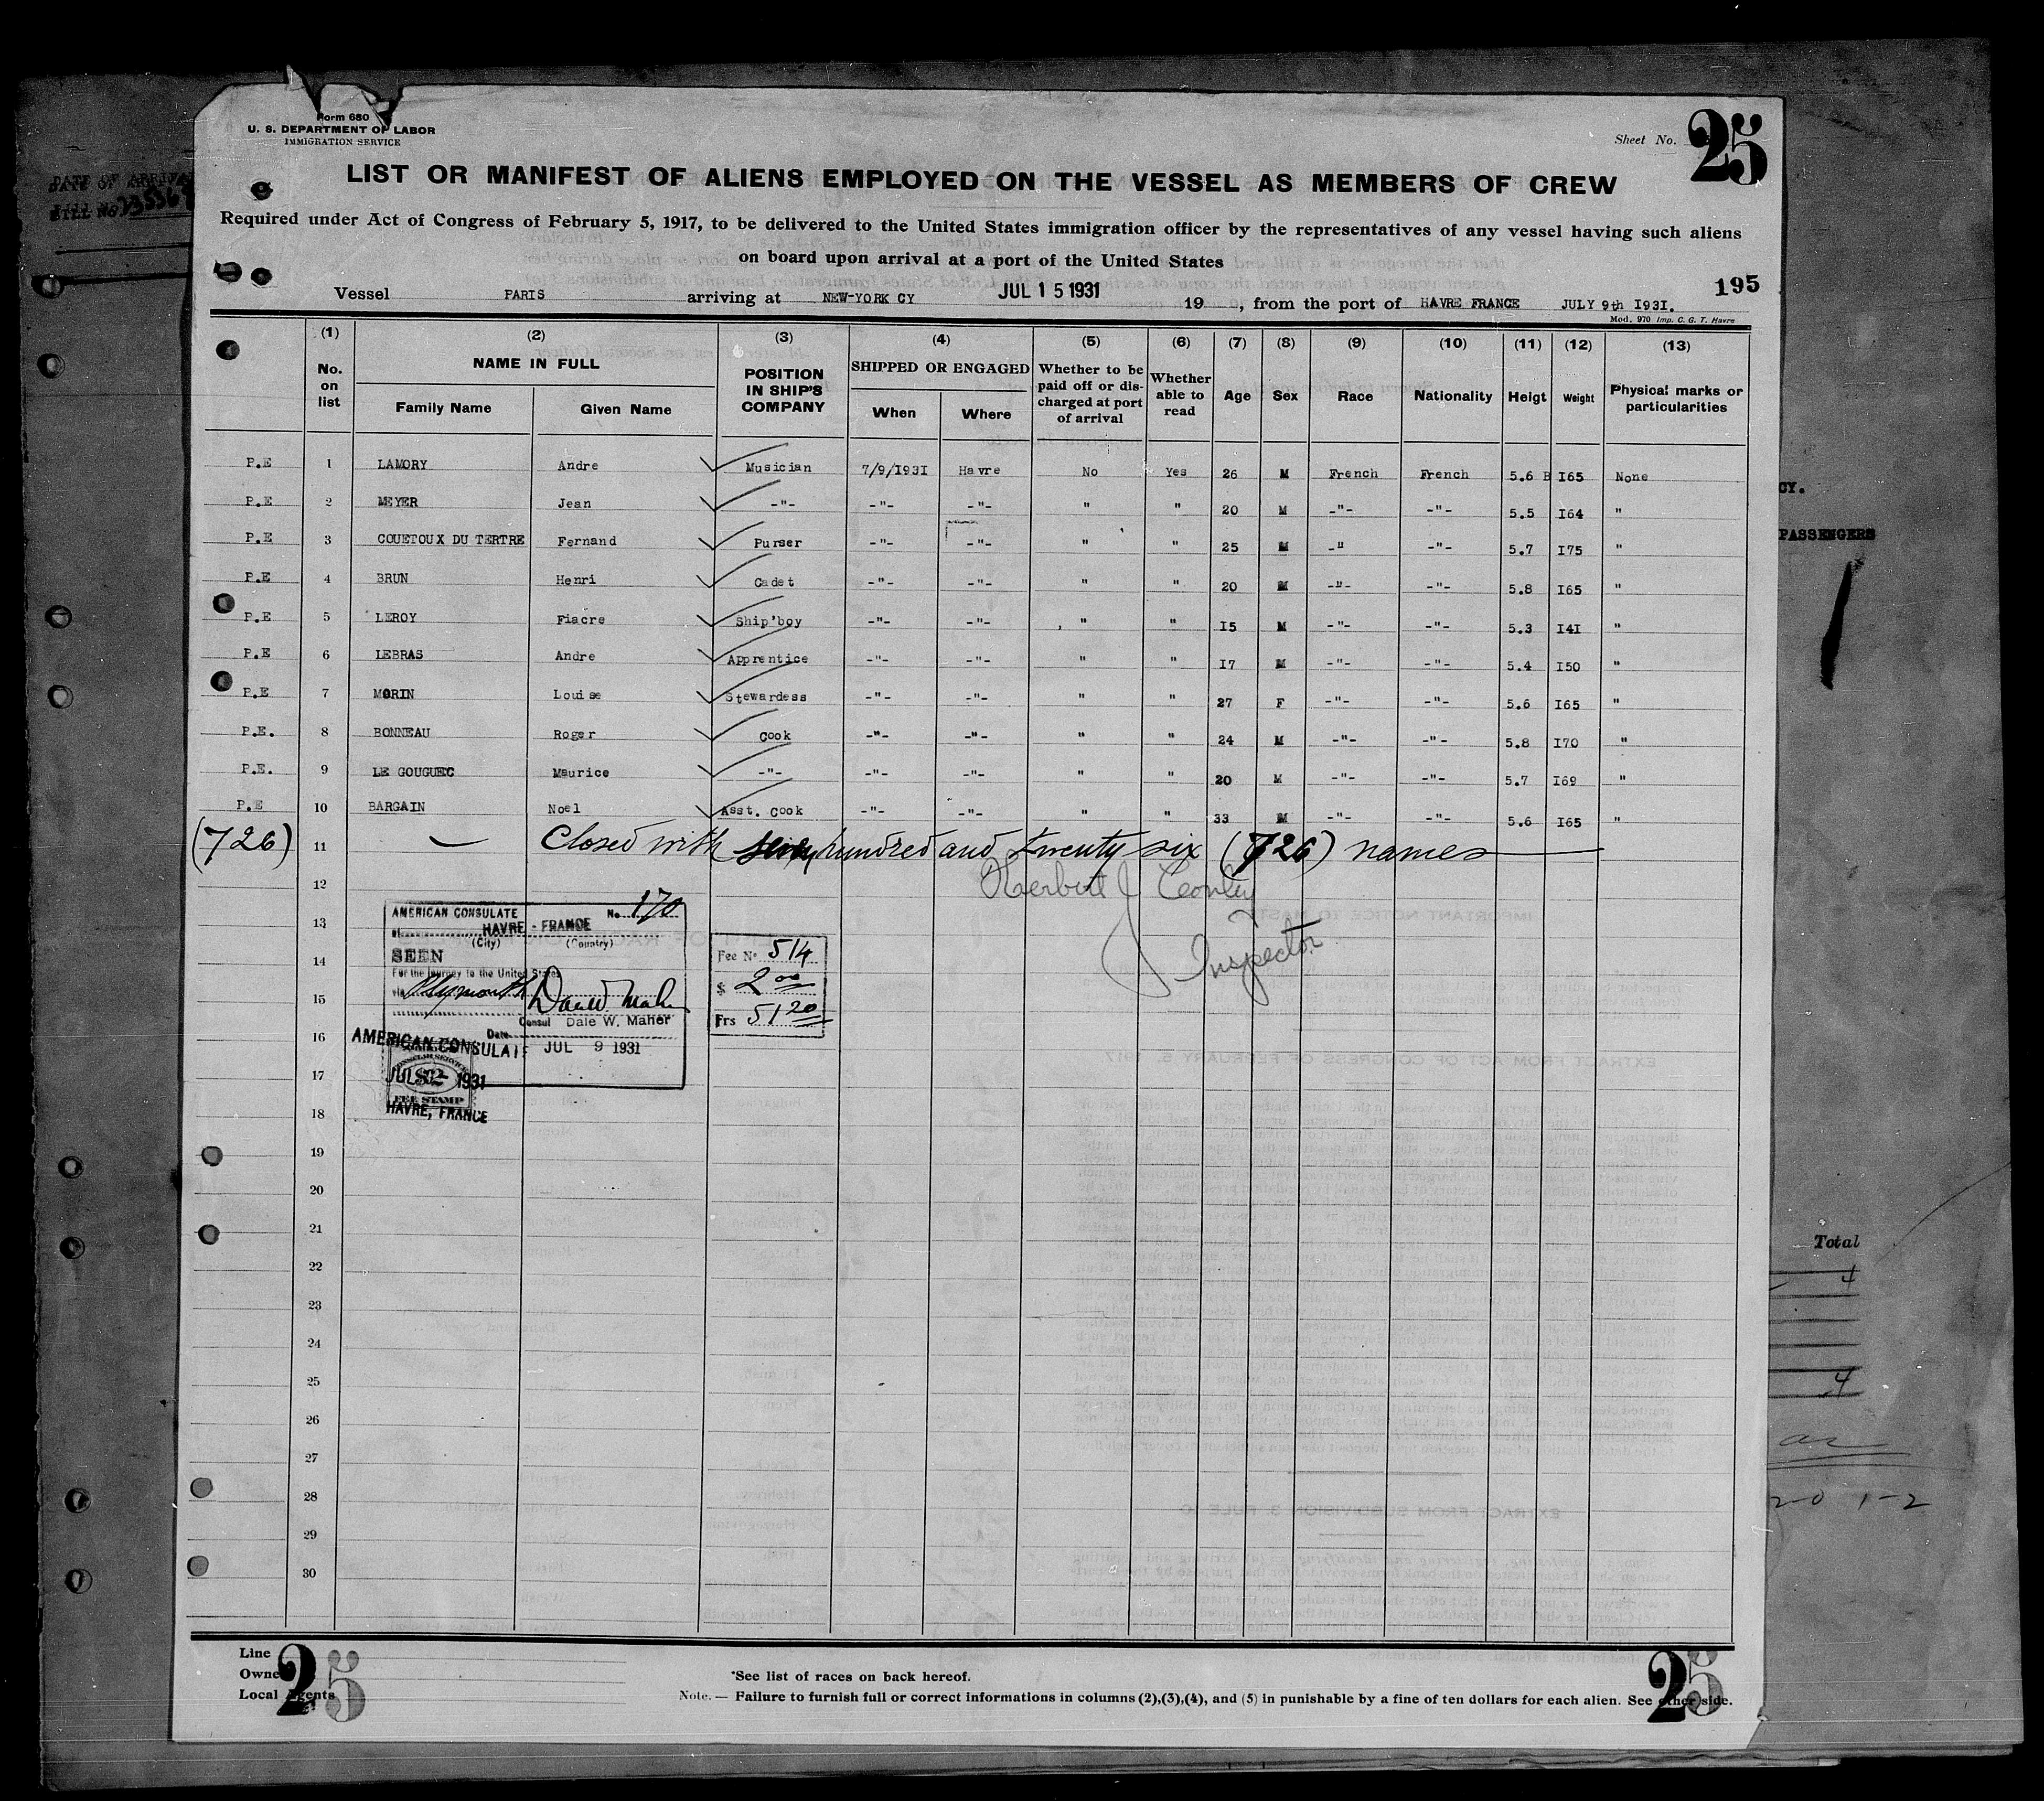 Form 680
U. S. DEPARTMENT OF LABOR
IMMIGRATION SERVICE
Sheet No. 25
LIST OR MANIFEST OF ALIENS EMPLOYED ON THE VESSEL AS MEMBERS OF CREW
Required under Act of Congress of February 5, 1917, to be delivered to the United States immigration officer by the representatives of any vessel having such aliens
on board upon arrival at a port of the United States
195
Vessel PARIS arriving at NEW-YORK CY JUL 15 1931 19 , from the port of HAVRE FRANCE JULY 9th 1931.
Mod. 970 Imp. C. G. T. Havre
(1) (2) (3) (4) (5) (6) (7) (8) (9) (10) (11) (12) (13)
No. on list NAME IN FULL Family Name Given Name POSITION IN SHIP'S COMPANY SHIPPED OR ENGAGED When Where Whether to be paid off or discharged at port of arrival Whether able to read Age Sex Race Nationality Heigt Weight Physical marks or particularities
P.E 1 LAMORY Andre Musician 7/9/1931 Havre No Yes 26 M French French 5.6 165 None
P.E 2 MEYER Jean -"- -"- -"- " " 20 M -"- -"- 5.5 164 "
P.E 3 COUETOUX DU TERTRE Fernand Purser -"- -"- " " 25 M -" -"- 5.7 175 "
P.E 4 BRUN Henri Cadet -"- -"- " " 20 M -"- -"- 5.8 165 "
P.E 5 LEROY Fiacre Ship'boy -"- -"- " " 15 M -"- -"- 5.3 141 "
P.E 6 LEBRAS Andre Apprentice -"- -"- " " 17 M -"- -"- 5.4 150 "
P.E 7 MORIN Louise Stewardess -"- -"- " " 27 F -"- -"- 5.6 165 "
P.E. 8 BONNEAU Roger Cook -"- -"- " " 24 M -"- -"- 5.8 170 "
P.E. 9 LE GOUGUEC Maurice -"- -"- -"- " " 20 M -"- -"- 5.7 169 "
P.E 10 BARGAIN Noel Asst. Cook -"- -"- " " 33 M -"- -"- 5.6 165 "
(726) 11 — Closed with seven hundred and twenty six (726) names
12 Herbert J Conley
13 Inspector
14
15
16
17
18
AMERICAN CONSULATE No. 170
at HAVRE - FRANCE
(City) (Country)
SEEN
For the journey to the United States
via Plymouth Dale W. Maher
Consul Dale W. Maher
Date JUL 9 1931
Fee No 514
$ 2 00
Frs 51 20
AMERICAN CONSULATE
JUL 1931
FEE STAMP
HAVRE, FRANCE
19
20
21
22
23
24
25
26
27
28
29
30
CY.
PASSENGERS
Total
4
4
Line
Owne
Local Agents
25
*See list of races on back hereof.
Note. — Failure to furnish full or correct informations in columns (2),(3),(4), and (5) in punishable by a fine of ten dollars for each alien. See other side.
25